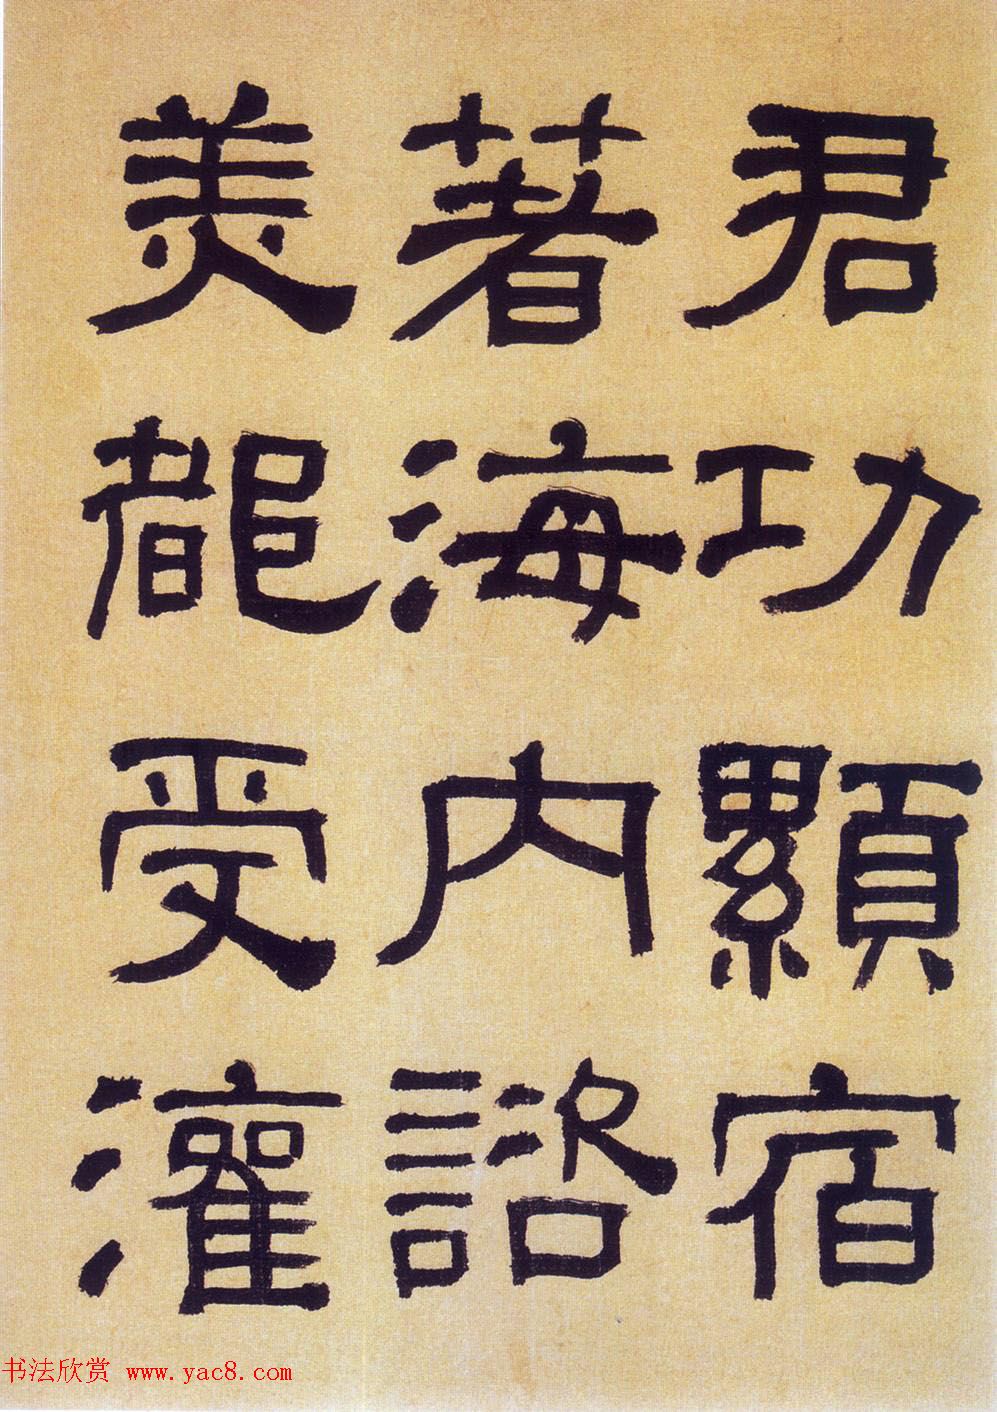 君功顯宿
著海内諮
美都受灌
书法欣赏 www.yac8.com